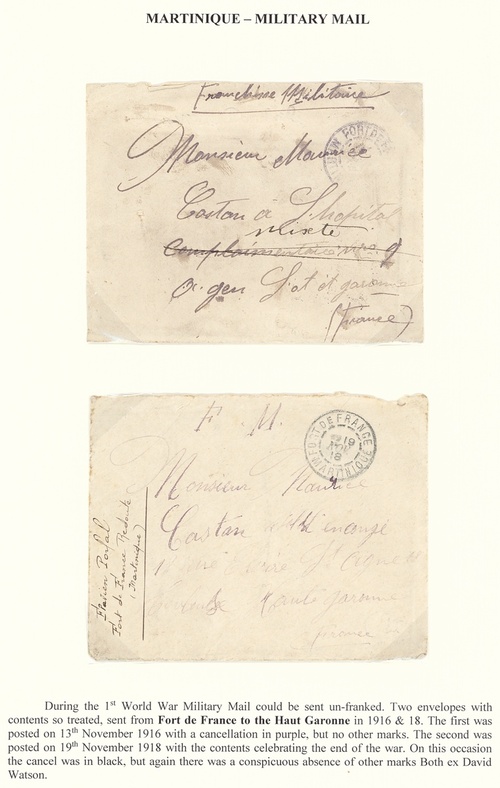 MARTINIQUE – MILITARY MAIL
Franchise Militaire
Monsieur Maurice
Castan à L'hopital
mixte
Complaimentaire
Agen Lot et garonne
(France)
F. M.
FORT DE FRANCE
19
18
MARTINIQUE
Monsieur Maurice
Castan
Haute garonne
france
Fort de France Redoute
(Martinique)
During the 1st World War Military Mail could be sent un-franked. Two envelopes with
contents so treated, sent from Fort de France to the Haut Garonne in 1916 & 18. The first was
posted on 13th November 1916 with a cancellation in purple, but no other marks. The second was
posted on 19th November 1918 with the contents celebrating the end of the war. On this occasion
the cancel was in black, but again there was a conspicuous absence of other marks Both ex David
Watson.